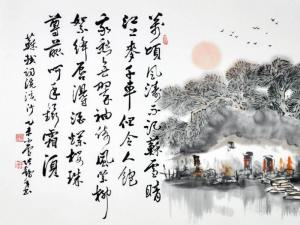 萬頃風濤不記蘇雪晴
江上麥千車但令人飽
我愁無翠袖倚風縈柳
絮絳唇得酒爛櫻珠
尊前呵手鑷霜須
蘇軾詞浣溪沙